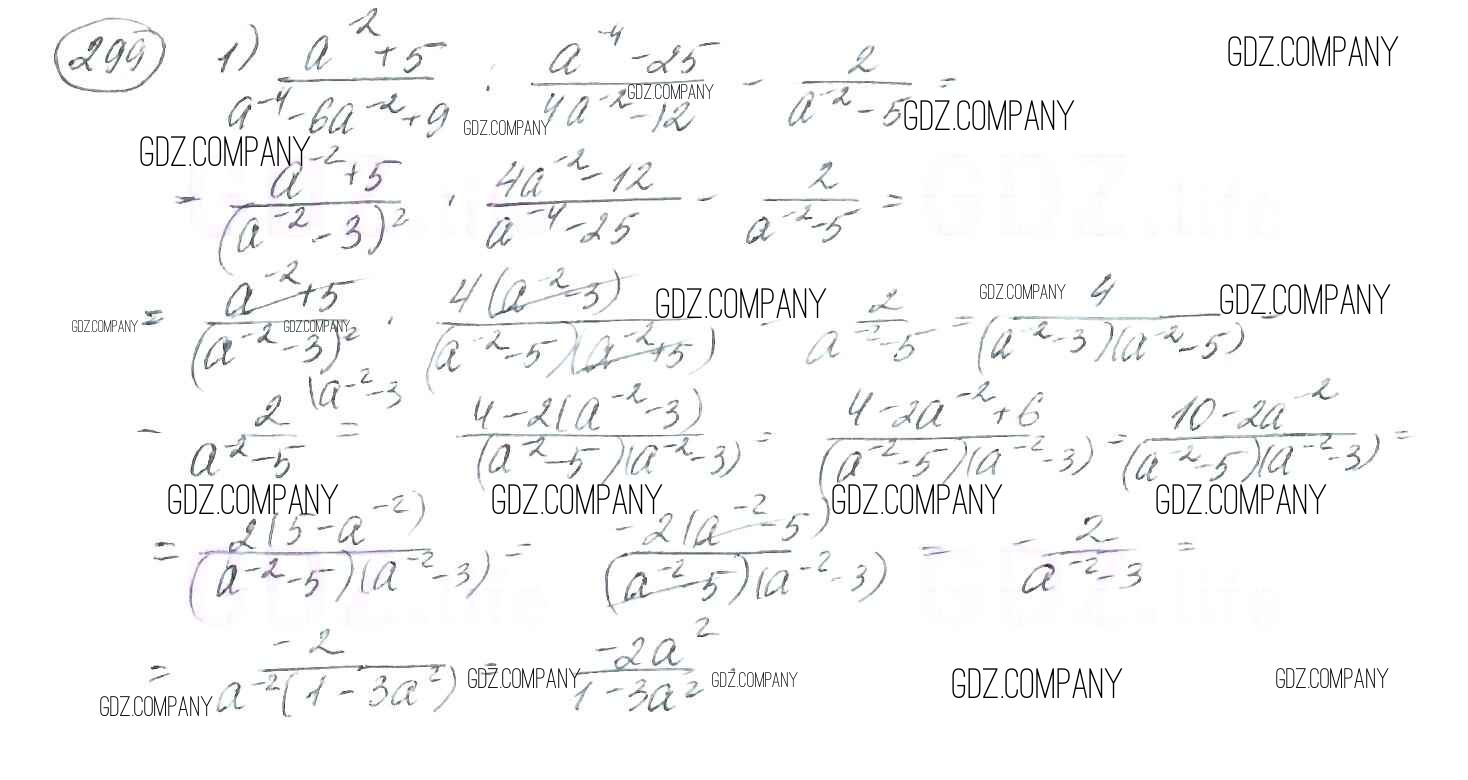 299 1) (a^-2 + 5)/(a^-4 - 6a^-2 + 9) : (a^-4 - 25)/(4a^-2 - 12) - 2/(a^-2 - 5) = GDZ.COMPANY GDZ.COMPANY GDZ.COMPANY GDZ.COMPANY
GDZ.COMPANY
= (a^-2 + 5)/(a^-2 - 3)^2 · (4a^-2 - 12)/(a^-4 - 25) - 2/(a^-2 - 5) =
GDZ.life GDZ.life
= (a^-2 + 5)/(a^-2 - 3)^2 · 4(a^-2 - 3)/((a^-2 - 5)(a^-2 + 5)) - 2/(a^-2 - 5) = 4/((a^-2 - 3)(a^-2 - 5)) -
GDZ.COMPANY GDZ.COMPANY GDZ.COMPANY GDZ.COMPANY GDZ.COMPANY
- 2/(a^-2 - 5) (a^-2 - 3 = (4 - 2(a^-2 - 3))/((a^-2 - 5)(a^-2 - 3)) = (4 - 2a^-2 + 6)/((a^-2 - 5)(a^-2 - 3)) = (10 - 2a^-2)/((a^-2 - 5)(a^-2 - 3)) =
GDZ.COMPANY GDZ.COMPANY GDZ.COMPANY GDZ.COMPANY
= 2(5 - a^-2)/((a^-2 - 5)(a^-2 - 3)) = -2(a^-2 - 5)/((a^-2 - 5)(a^-2 - 3)) = - 2/(a^-2 - 3) =
GDZ.life GDZ.life
= -2/(a^-2(1 - 3a^2)) = -2a^2/(1 - 3a^2)
GDZ.COMPANY GDZ.COMPANY GDZ.COMPANY GDZ.COMPANY GDZ.COMPANY